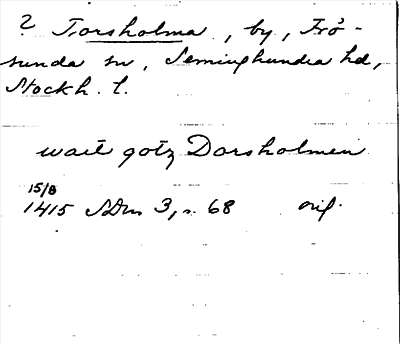 ? Torsholma, by, Frö-
sunda sn, Seminghundra hd,
Stockh. l.
wart gotz Dorsholmen
15/8
1415 SDns 3, s. 68 orig.